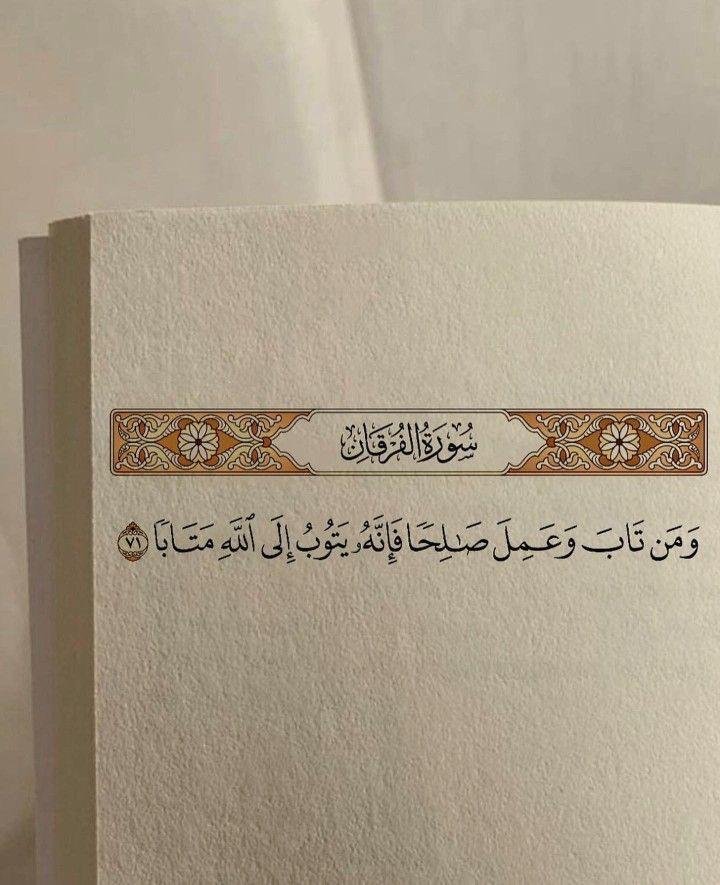 سُورَةُ الْفُرْقَانِ
وَمَن تَابَ وَعَمِلَ صَـٰلِحًا فَإِنَّهُۥ يَتُوبُ إِلَى ٱللَّهِ مَتَابًا ٧١